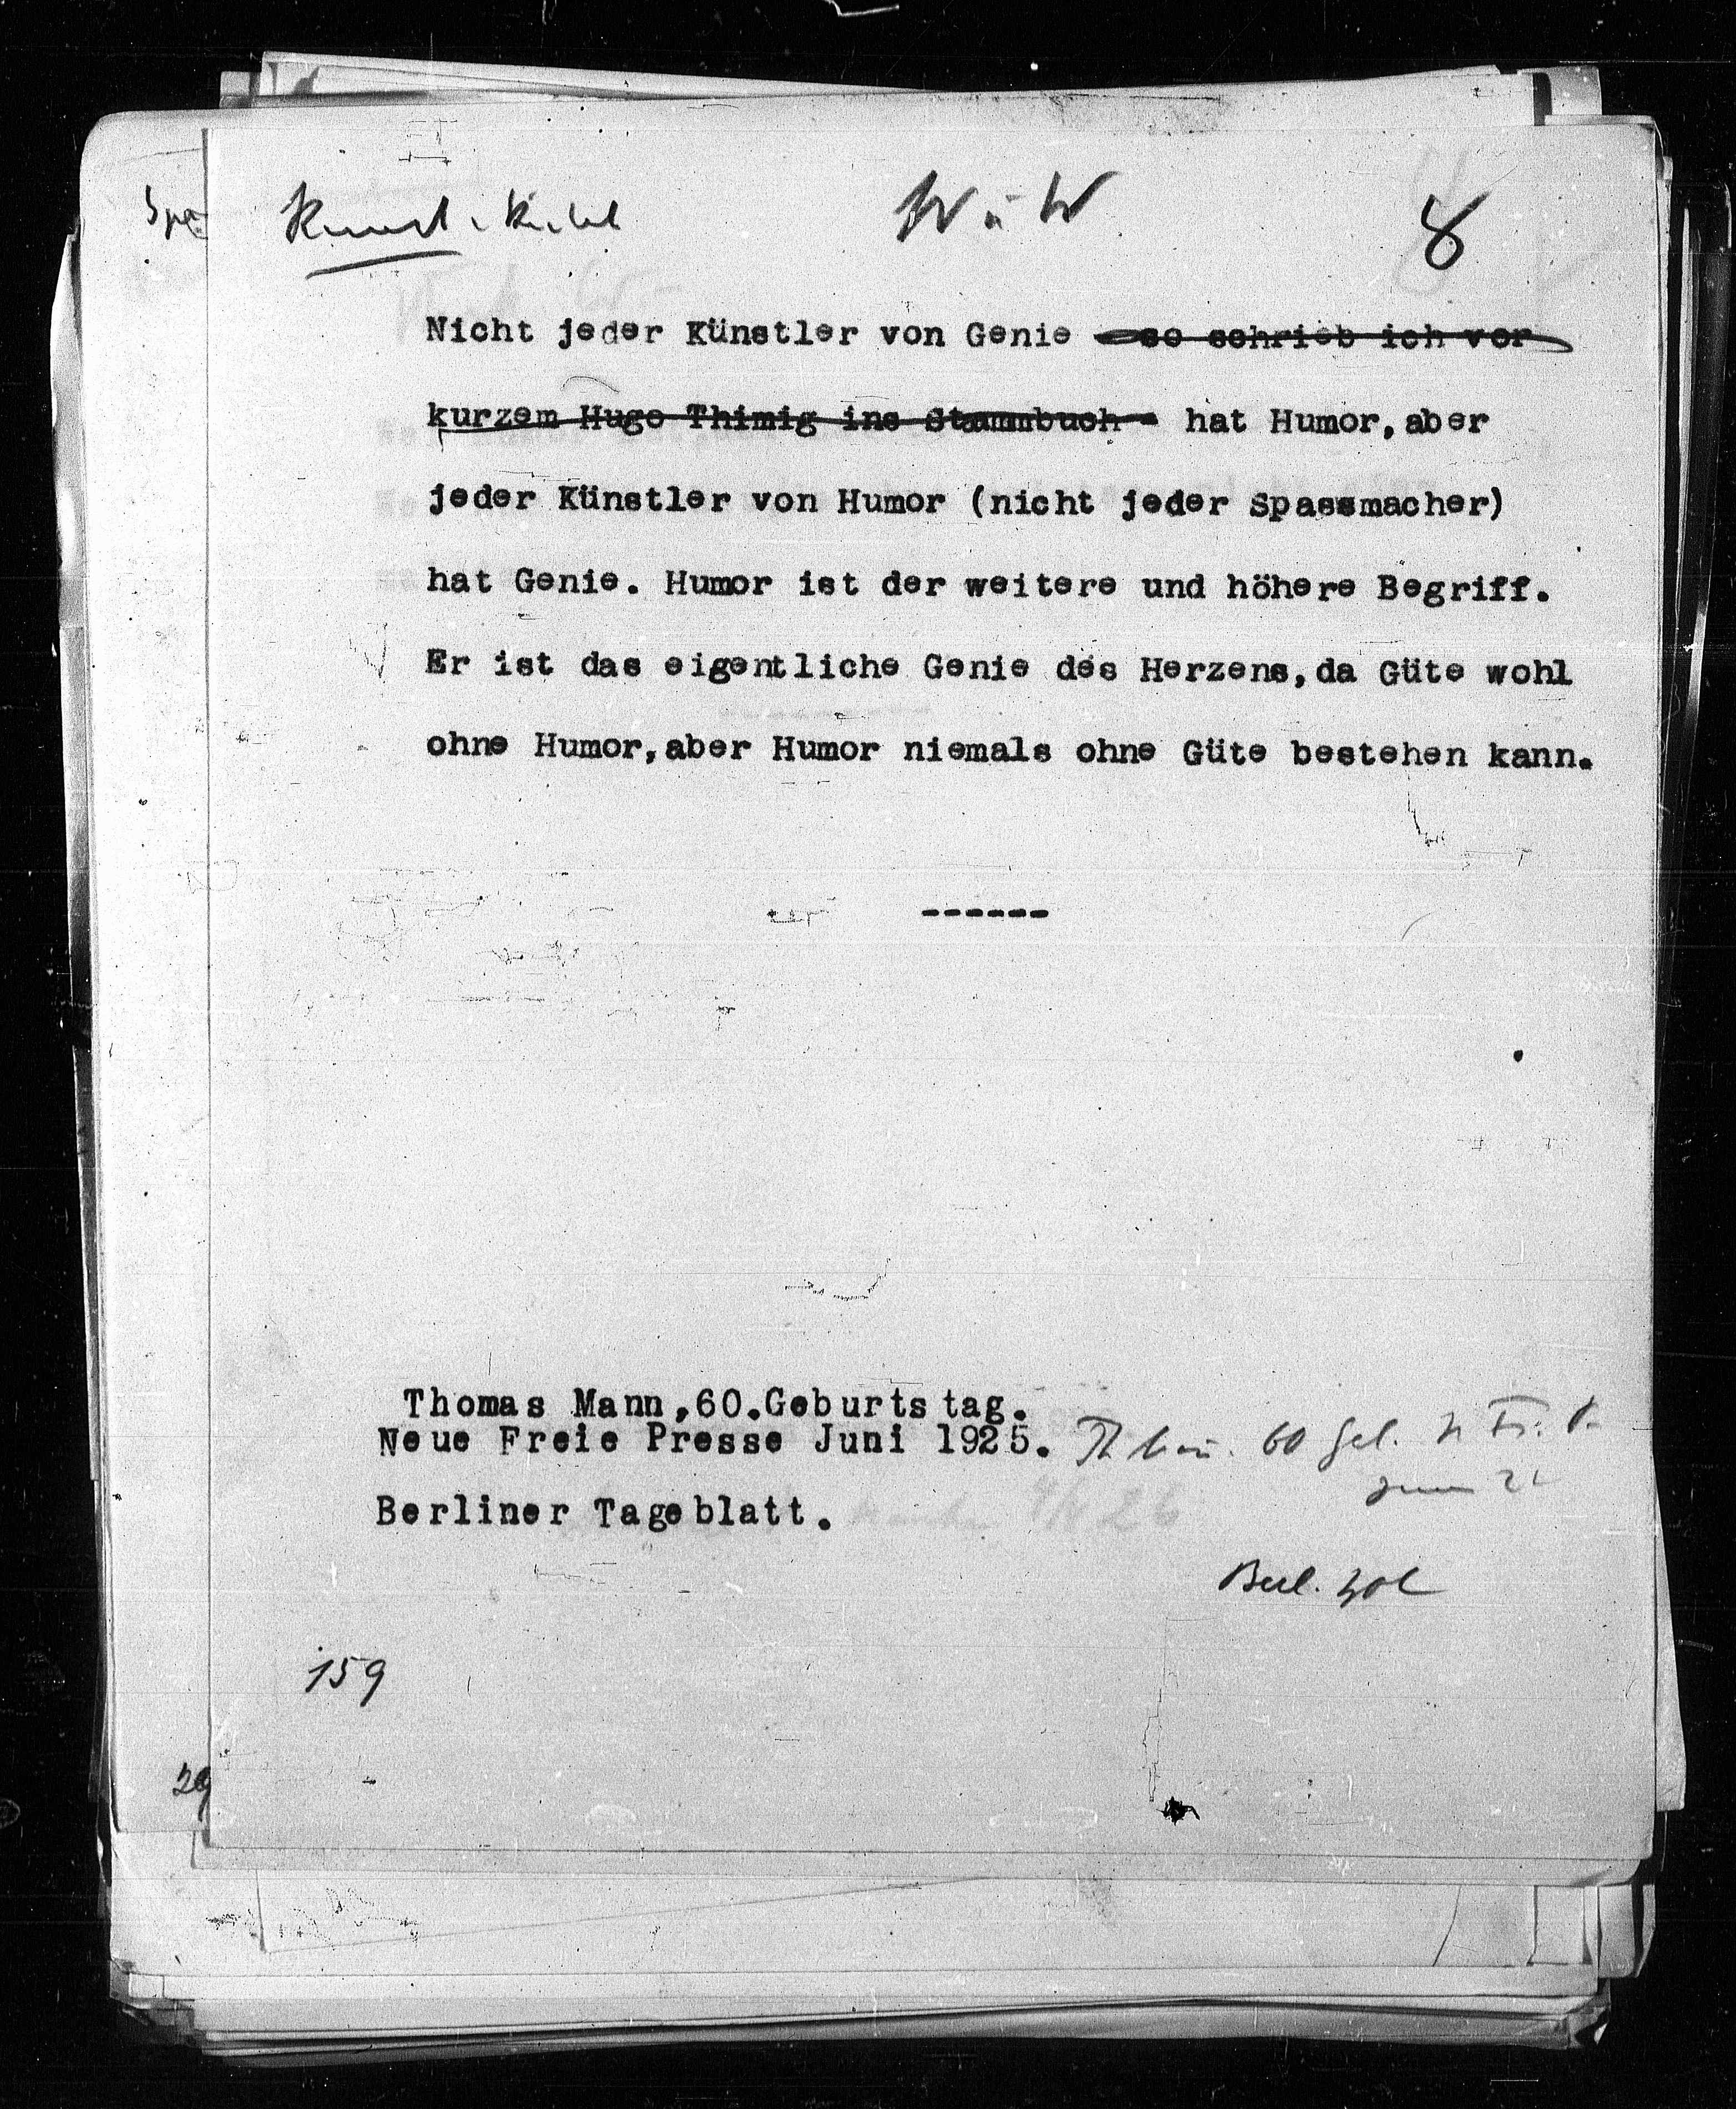 Kunst
W u W
8
Nicht jeder Künstler von Genie - so schrieb ich vor
kurzem Hugo Thimig ins Stammbuch - hat Humor, aber
jeder Künstler von Humor (nicht jeder Spassmacher)
hat Genie. Humor ist der weitere und höhere Begriff.
Er ist das eigentliche Genie des Herzens, da Güte wohl
ohne Humor, aber Humor niemals ohne Güte bestehen kann.
------
Thomas Mann, 60. Geburtstag.
Neue Freie Presse Juni 1925.
60
Berliner Tageblatt.
Berl.
159